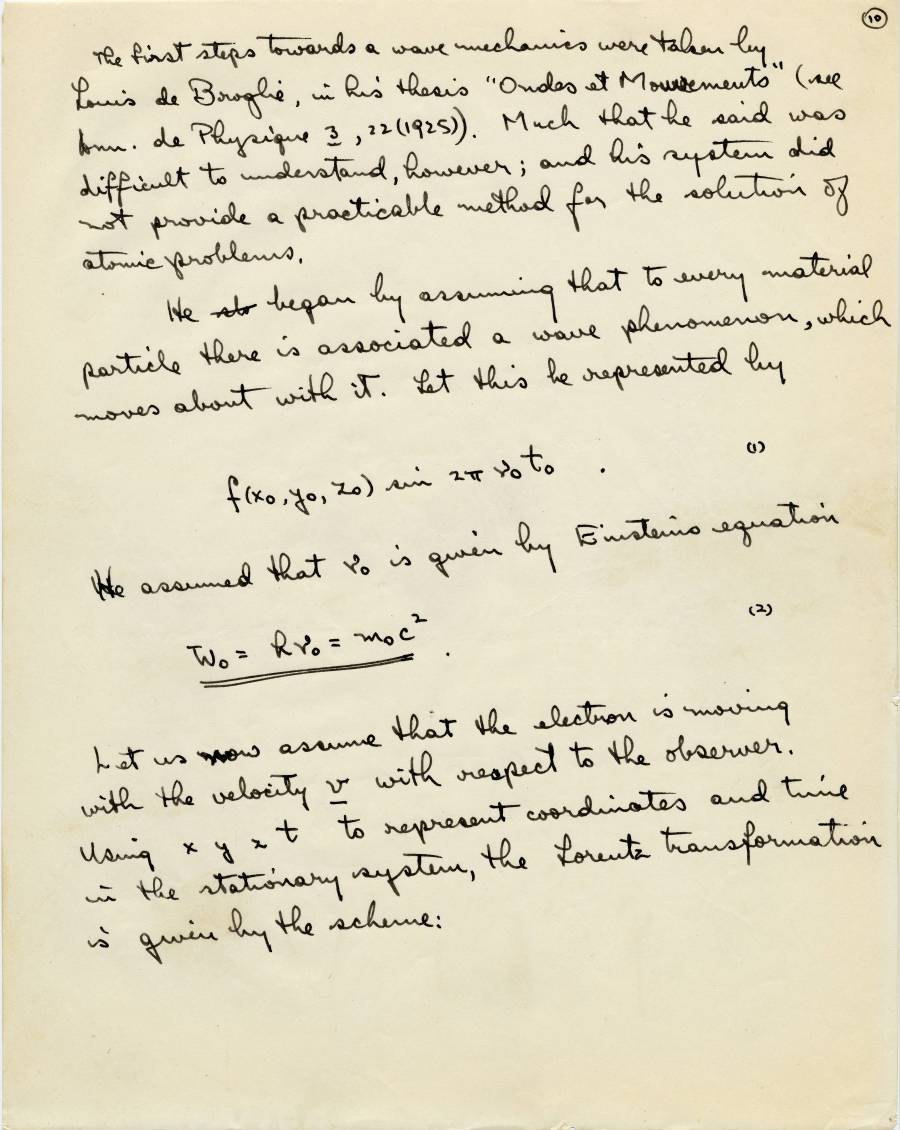 10
The first steps towards a wave mechanics were taken by
Louis de Broglie, in his thesis "Ondes et Mouvements" (see
Ann. de Physique 3, 22 (1925)). Much that he said was
difficult to understand, however; and his system did
not provide a practicable method for the solution of
atomic problems.
He began by assuming that to every material
particle there is associated a wave phenomenon, which
moves about with it. Let this be represented by
f(x₀, y₀, z₀) sin 2π ν₀t₀ . (1)
He assumed that ν₀ is given by Einstein's equation
W₀ = hν₀ = m₀c² . (2)
Let us now assume that the electron is moving
with the velocity v with respect to the observer.
Using x y z t to represent coordinates and time
in the stationary system, the Lorentz transformation
is given by the scheme: